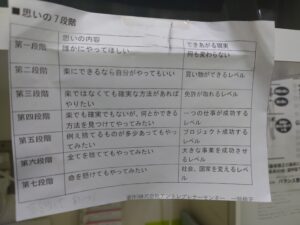 ■思いの7段階
思いの内容
できあがる現実
第一段階
誰かにやってほしい
何も変わらない
第二段階
楽にできるなら自分がやってもいい
買い物ができるレベル
第三段階
楽ではなくても確実な方法があれば
やりたい
免許が取れるレベル
第四段階
楽でも確実でもないが、何とかできる
方法を見つけてやってみたい
一つの仕事が成功する
レベル
第五段階
例え捨てるものが多少あってもやって
みたい
プロジェクト成功する
レベル
第六段階
全てを捨ててもやってみたい
大きな事業を成功させ
るレベル
第七段階
命を懸けてもやってみたい
社会、国家を変えるレベ
ル
株式会社アントレプレナーセンター